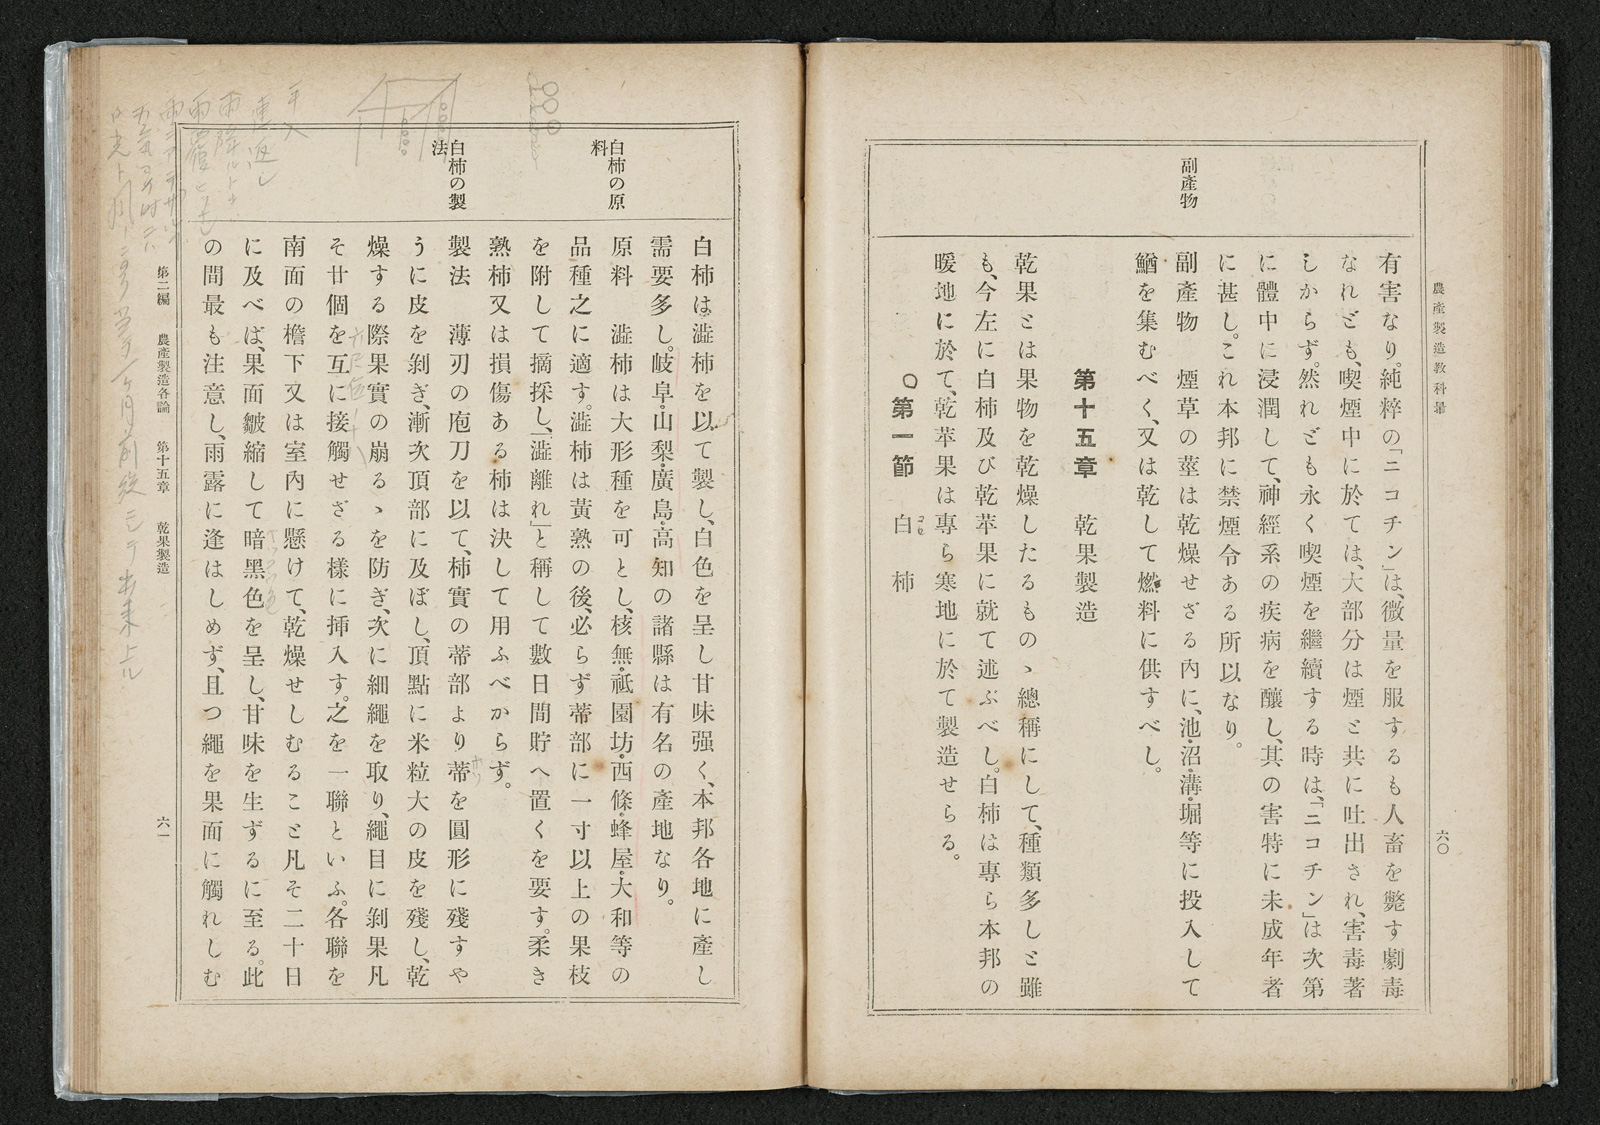 農產製造敎科書
六〇
副產物
有害なり。純粹の「ニコチン」は、微量を服するも人畜を斃す劇毒
なれども、喫煙中に於ては、大部分は煙と共に吐出され、害毒著
しからず。然れども永く喫煙を繼續する時は、「ニコチン」は次第
に體中に浸潤して、神經系の疾病を釀し、其の害特に未成年者
に甚し。これ本邦に禁煙令ある所以なり。
副產物　煙草の莖は乾燥せざる內に、池・沼・溝・堀等に投入して
鰌を集むべく、又は乾して燃料に供すべし。
第十五章　乾果製造
乾果とは果物を乾燥したるものゝ總稱にして、種類多しと雖
も、今左に白柿及び乾苹果に就て述ぶべし。白柿は專ら本邦の
暖地に於て、乾苹果は專ら寒地に於て製造せらる。
○第一節　白柿
白柿の原料
白柿の製法
白柿は澁柿を以て製し、白色を呈し甘味强く、本邦各地に產し
需要多し。岐阜・山梨・廣島・高知の諸縣は有名の產地なり。
原料　澁柿は大形種を可とし、核無・祇園坊・西條・蜂屋・大和等の
品種之に適す。澁柿は黃熟の後、必らず蔕部に一寸以上の果枝
を附して摘採し、「澁離れ」と稱して數日間貯へ置くを要す。柔き
熟柿又は損傷ある柿は決して用ふべからず。
製法　薄刃の庖刀を以て、柿實の蔕部より蔕を圓形に殘すや
うに皮を剝ぎ、漸次頂部に及ぼし、頂點に米粒大の皮を殘し、乾
燥する際果實の崩るゝを防ぎ、次に細繩を取り、繩目に剝果凡
そ廿個を互に接觸せざる樣に揷入す。之を一聯といふ。各聯を
南面の檐下又は室內に懸けて、乾燥せしむること凡そ二十日
に及べば、果面皺縮して暗黑色を呈し、甘味を生ずるに至る。此
の間最も注意し、雨露に逢はしめず、且つ繩を果面に觸れしむ
第二編　農產製造各論　第十五章　乾果製造
六一